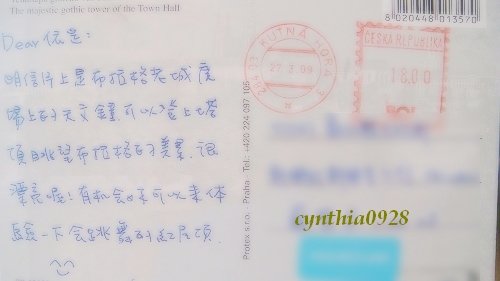 The majestic gothic tower of the Town Hall
Dear 依是:
明信片上是布拉格老城度
場上的天文鐘,可以登上塔
頂眺望布拉格的美景.很
漂亮喔!有机会你可以来体
驗一下会跳舞的紅屋頂.
8020448013570
KUTNÁ HORA 3
284 03
27.3.09
ČESKÁ REPUBLIKA
18.00
Protex s.r.o., Praha Tel.: +420 224 097 105
cynthia0928